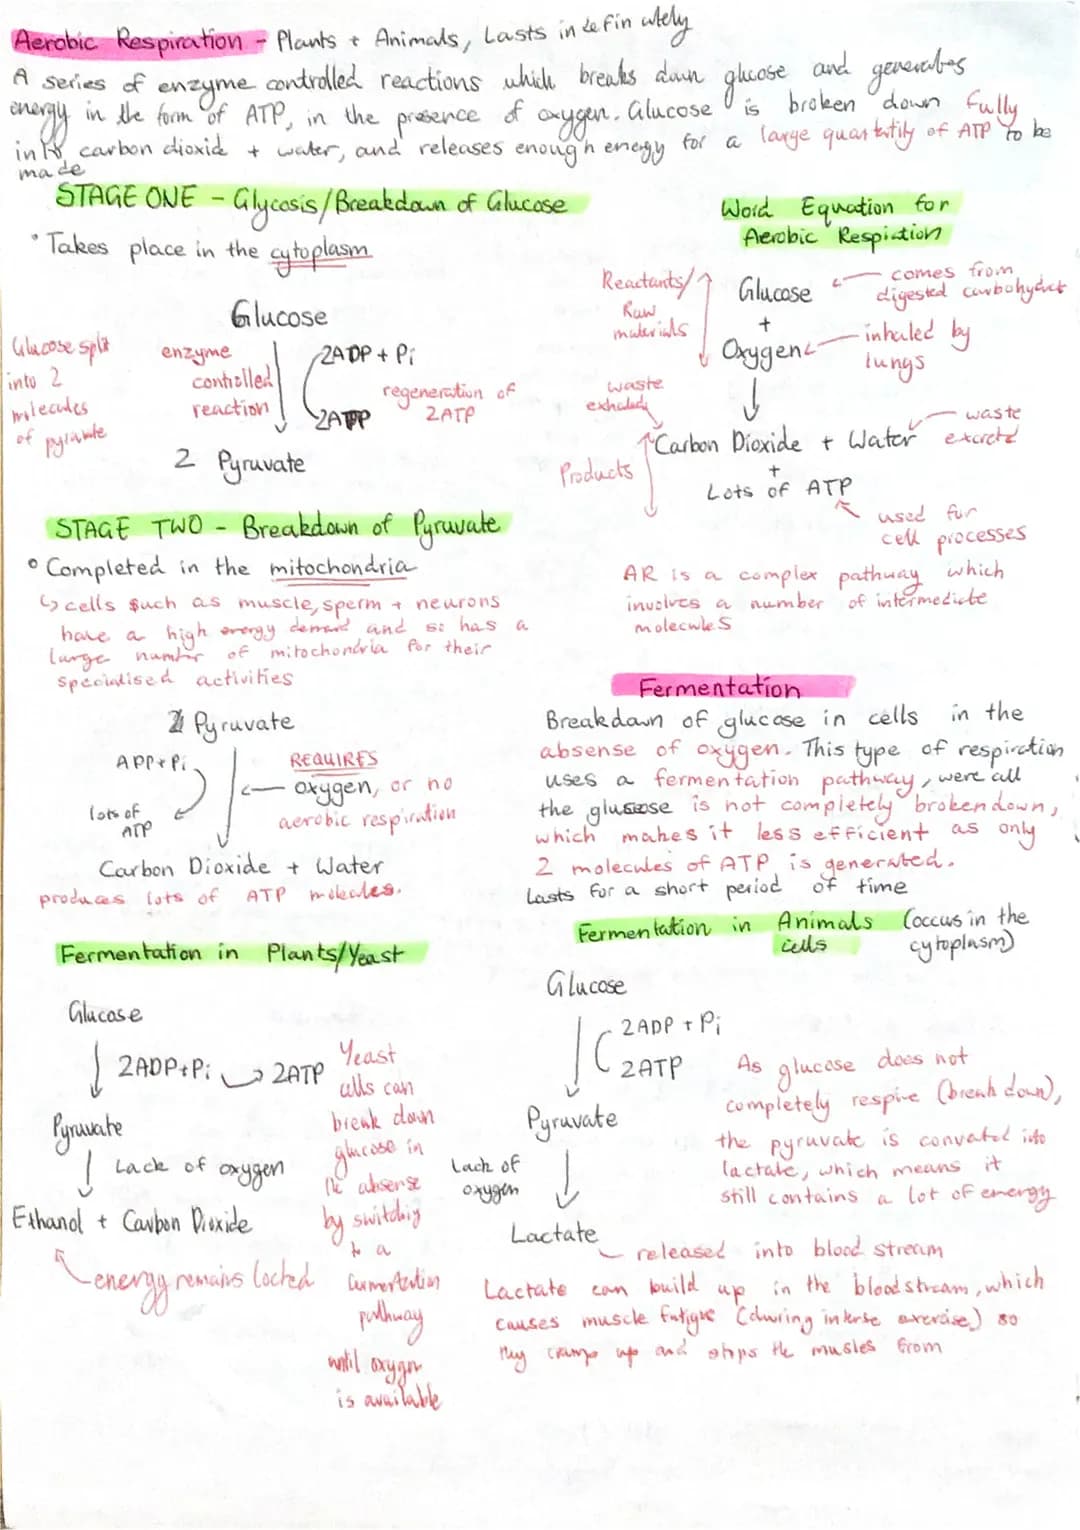 Aerobic Respiration - Plants + Animals, Lasts indefinitely
A series of enzyme controlled reactions which breaks down glucose and generates
energy in the form of ATP, in the presence of oxygen. Glucose is broken down fully
into carbon dioxide + water, and releases enough energy for a large quantity of ATP to be
made
STAGE ONE - Glycosis/Breakdown of Glucose
• Takes place in the cytoplasm
Glucose
Glucose split
into 2
molecules
of pyruvate
enzyme
controlled
reaction
2ADP + Pi
2ATP
regeneration of
2ATP
2 Pyruvate
Word Equation for
Aerobic Respiration
Reactants/
Raw
materials
Glucose
comes from
digested carbohydrat
+
Oxygen
inhaled by
lungs
waste
exhaled
Carbon Dioxide + Water
waste
excreted
Products
+
Lots of ATP
used for
cell processes
AR is a complex pathway which
involves a number of intermediate
molecules
STAGE TWO - Breakdown of Pyruvate
• Completed in the mitochondria
↳ cells such as muscle, sperm + neurons
have a high energy demand and so has a
large number of mitochondria for their
specialised activities
2 Pyruvate
ADP + Pi
lots of
ATP
REQUIRES
oxygen, or no
aerobic respiration
Carbon Dioxide + Water
produces lots of ATP molecules.
Fermentation
Breakdown of glucose in cells in the
absense of oxygen. This type of respiration
uses a fermentation pathway, were all
the glucose is not completely broken down,
which makes it less efficient as only
2 molecules of ATP is generated.
Lasts for a short period of time
Fermentation in Plants/Yeast
Glucose
2ADP+Pi → 2ATP
Pyruvate
Lack of oxygen
Ethanol + Carbon Dioxide
energy remains locked
Yeast
cells can
break down
glucose in
the absense
by switching
to a
fermentation
pathway
until oxygen
is available
Fermentation in Animals (occurs in the
cells cytoplasm)
Glucose
2ADP + Pi
2ATP
Pyruvate
Lack of
oxygen
Lactate
As glucose does not
completely respire (break down),
the pyruvate is converted into
lactate, which means it
still contains a lot of energy
released into blood stream
Lactate can build up in the bloodstream, which
causes muscle fatigue (during intense exercise) so
they cramp up and stops the musles from